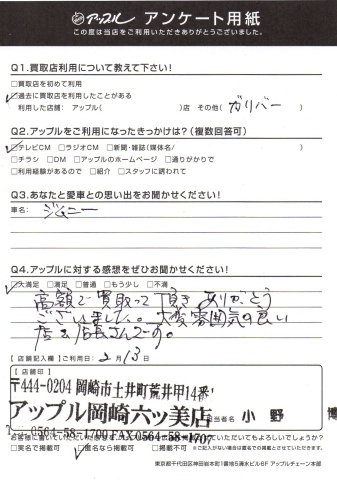 アップル アンケート用紙
この度は当店をご利用いただきありがとうございました。
Q1.買取店利用について教えて下さい!
□買取店を初めて利用
□過去に買取店を利用したことがある
利用した店舗: アップル( )店 その他( ガリバー )
Q2.アップルをご利用になったきっかけは?(複数回答可)
□テレビCM □ラジオCM □新聞・雑誌(媒体名/ )
□チラシ □DM □アップルのホームページ □通りがかりで
□利用経験があるので □紹介 □スタッフに誘われて
Q3.あなたと愛車との思い出をお聞かせください!
車名: ジムニー
Q4.アップルに対する感想をぜひお聞かせください!
□大満足 □満足 □普通 □もう少し □不満
高額で買取って頂き、ありがとう
ございました。大変雰囲気の良い
店と店長さんです。
【店舗記入欄】ご利用日: 2月13日
【店舗印】
〒444-0204 岡崎市土井町荒井甲14番1
アップル岡崎六ツ美店
担当者名 小野 博
0564-58-1700 FAX0564-58-1707
お客様に書いていただいた
掲載していただいてもよろしいでしょうか?
□実名で掲載可 □匿名なら掲載可 □掲載不可 ※ご記入がない場合は匿名での掲載とさせていただきます。
東京都千代田区神田岩本町1番地5清水ビル6F アップルチェーン本部